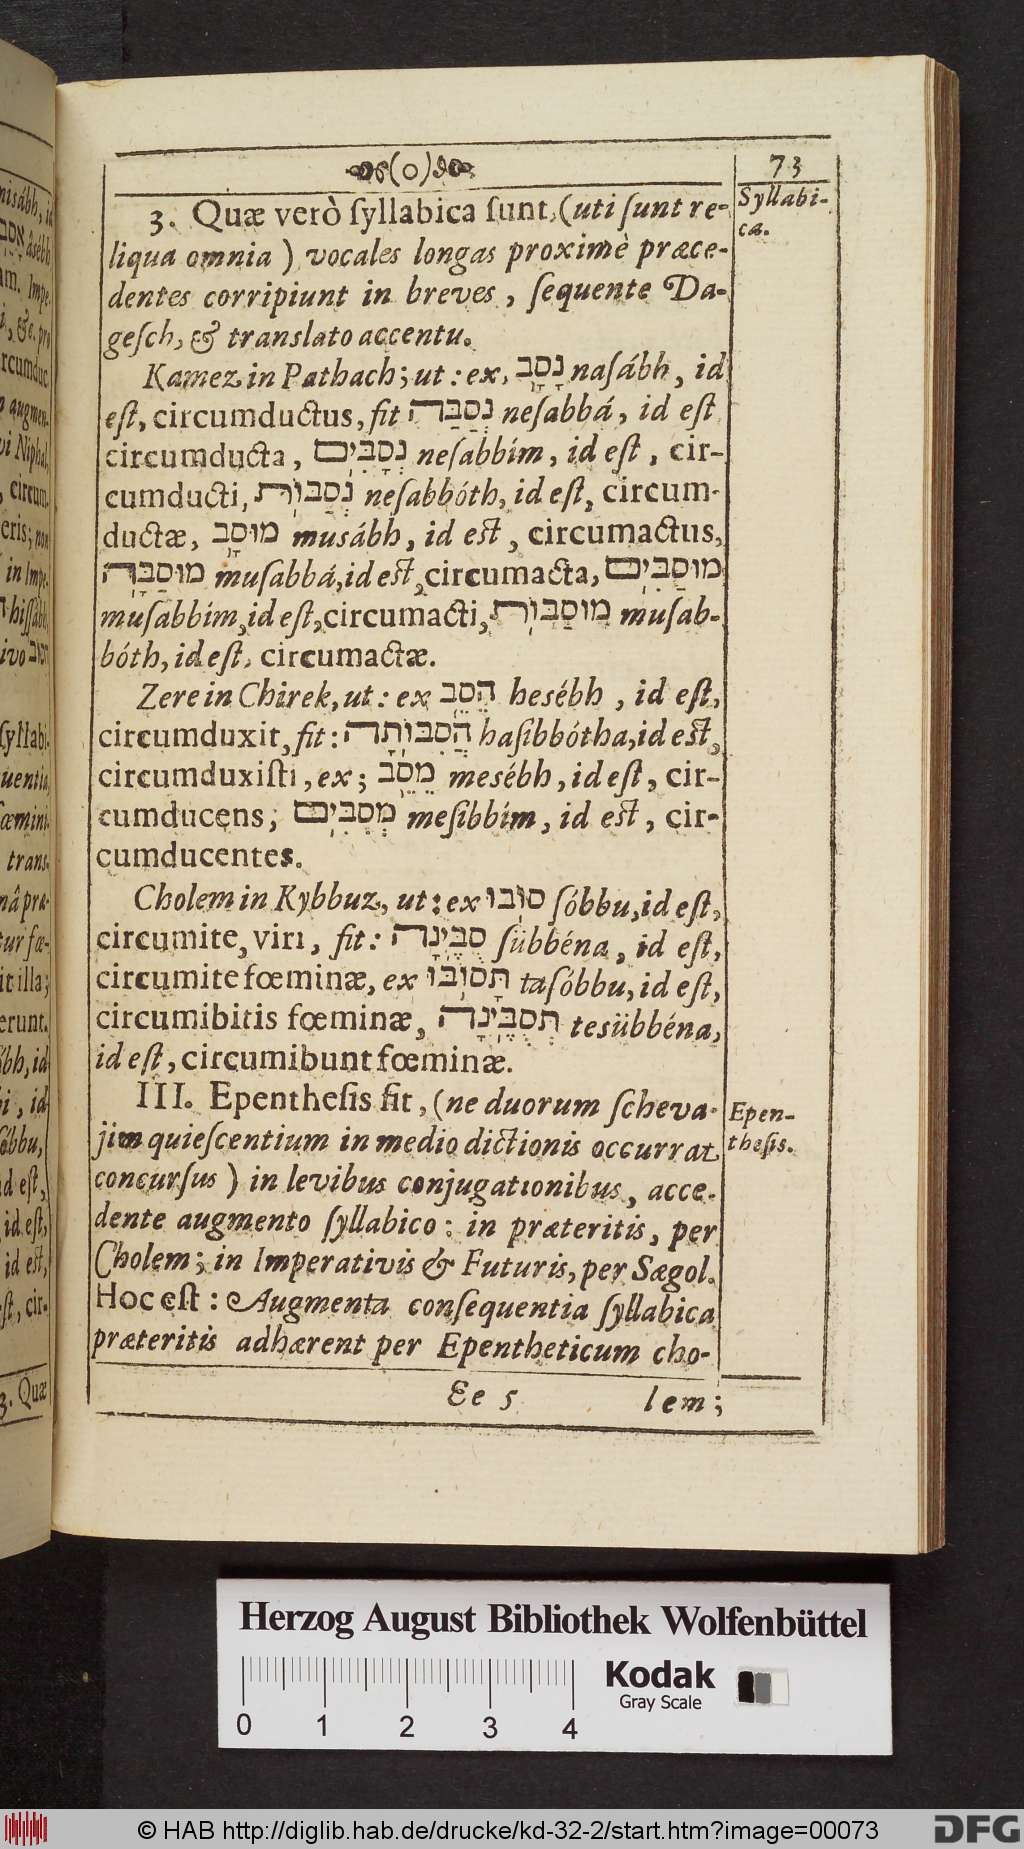 (o) 73
3. Quæ verò ſyllabica ſunt, (uti ſunt re- Syllabi-
liqua omnia) vocales longas proximè præce- ca.
dentes corripiunt in breves, ſequente Da-
geſch, & translato accentu.
Kamez in Pathach; ut: ex. נָסָב naſábh, id
eſt, circumductus, fit נְסַבָּה neſabbá, id eſt
circumducta, נְסַבִּים neſabbím, id eſt, cir-
cumducti, נְסַבּוֹת neſabbóth, id eſt, circum-
ductæ, מוּסָב musábh, id eſt, circumactus,
מוּסַבָּה muſabbá, id eſt, circumacta, מוּסַבִּים
muſabbím, id eſt, circumacti, מוּסַבּוֹת muſab-
bóth, id eſt, circumactæ.
Zere in Chirek, ut: ex הֵסֵב hesébh, id eſt,
circumduxit, fit: הֲסִבּוֹתָה haſibbótha, id eſt,
circumduxiſti, ex; מֵסֵב mesébh, id eſt, cir-
cumducens; מְסִבִּים meſibbím, id eſt, cir-
cumducentes.
Cholem in Kybbuz, ut: ex סוֹבּוּ ſóbbu, id eſt,
circumite, viri, fit: סֻבֶּינָה ſübbéna, id eſt,
circumite fœminæ, ex תָּסוֹבּוּ taſóbbu, id eſt,
circumibitis fœminæ, תְּסֻבֶּינָה tesübbéna,
id eſt, circumibunt fœminæ.
III. Epentheſis fit, (ne duorum ſcheva- Epen-
jim quieſcentium in medio dictionis occurrat theſis.
concurſus) in levibus conjugationibus, acce-
dente augmento ſyllabico: in præteritis, per
Cholem; in Imperativis & Futuris, per Sægol.
Hoc eſt: Augmenta conſequentia ſyllabica
præteritis adhærent per Epentheticum cho-
Ee 5 lem;
Herzog August Bibliothek Wolfenbüttel
Kodak
Gray Scale
0 1 2 3 4
© HAB http://diglib.hab.de/drucke/kd-32-2/start.htm?image=00073
DFG